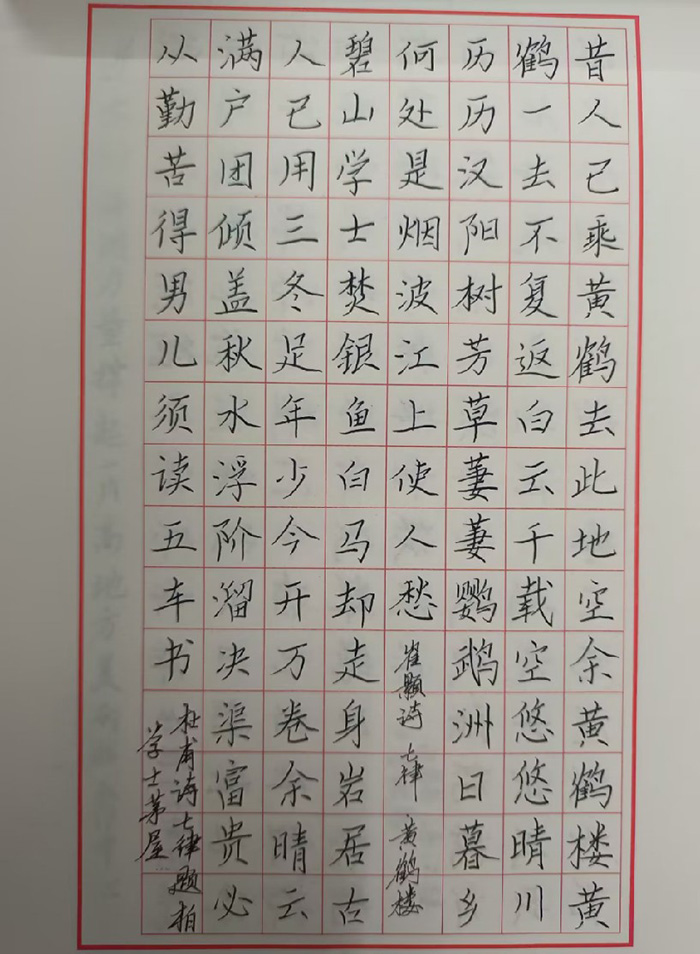 昔人已乘黄鹤去此地空余黄鹤楼黄
鹤一去不复返白云千载空悠悠晴川
历历汉阳树芳草萋萋鹦鹉洲日暮乡
何处是烟波江上使人愁 崔颢诗 七律 黄鹤楼
碧山学士焚银鱼白马却走身岩居古
人已用三冬足年少今开万卷余晴云
满户团倾盖秋水浮阶溜决渠富贵必
从勤苦得男儿须读五车书
杜甫诗七律题柏
学士茅屋